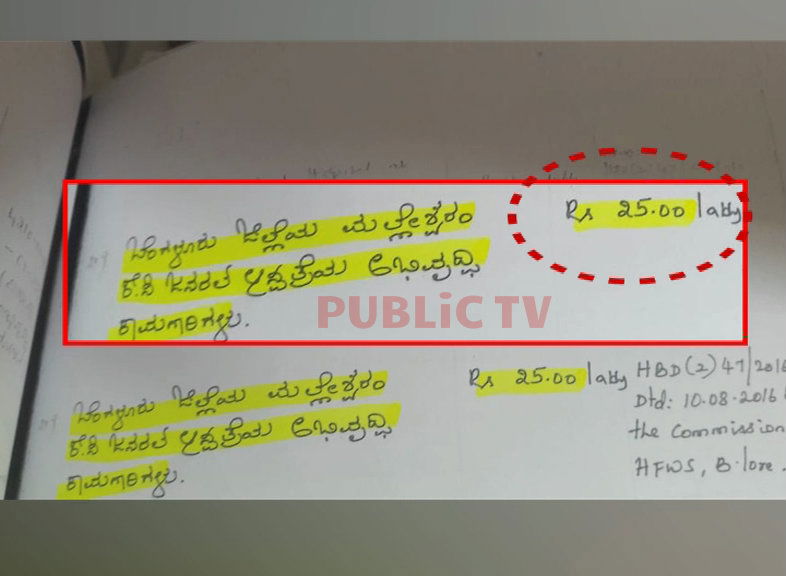 ಬೆಂಗಳೂರು ಜಿಲ್ಲೆಯ ಮಲ್ಲೇಶ್ವರಂ Rs 25.00 lakhs
ಕೆ.ಸಿ ಜನರಲ್ ಆಸ್ಪತ್ರೆಯ ಅಭಿವೃದ್ಧಿ
ಕಾಮಗಾರಿಗಳು.
PUBLiC TV
ಬೆಂಗಳೂರು ಜಿಲ್ಲೆಯ ಮಲ್ಲೇಶ್ವರಂ Rs 25.00 lakhs HBD(2)47/2016
ಕೆ.ಸಿ ಜನರಲ್ ಆಸ್ಪತ್ರೆಯ ಅಭಿವೃದ್ಧಿ Dtd: 10.08.2016
ಕಾಮಗಾರಿಗಳು. the Commission
HFWS, B'lore.